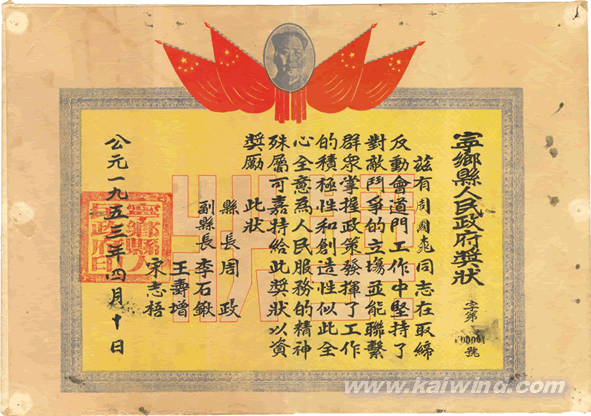 寧鄉縣人民政府獎狀
字第
00001
號
茲有周國堯同志在取締
反動會道門工作中堅持了
對敵鬥爭的立場並能聯繫
群眾掌握政策發揮了工作
的積極性和創造性似此全
心全意為人民服務的精神
殊屬可嘉特給此獎狀以資
獎勵 此狀
縣長 周政
副縣長 李石敏
王壽增
宋志梧
公元一九五三年四月十日
寧鄉縣人民政府印
獎狀
www.kaiwind.com